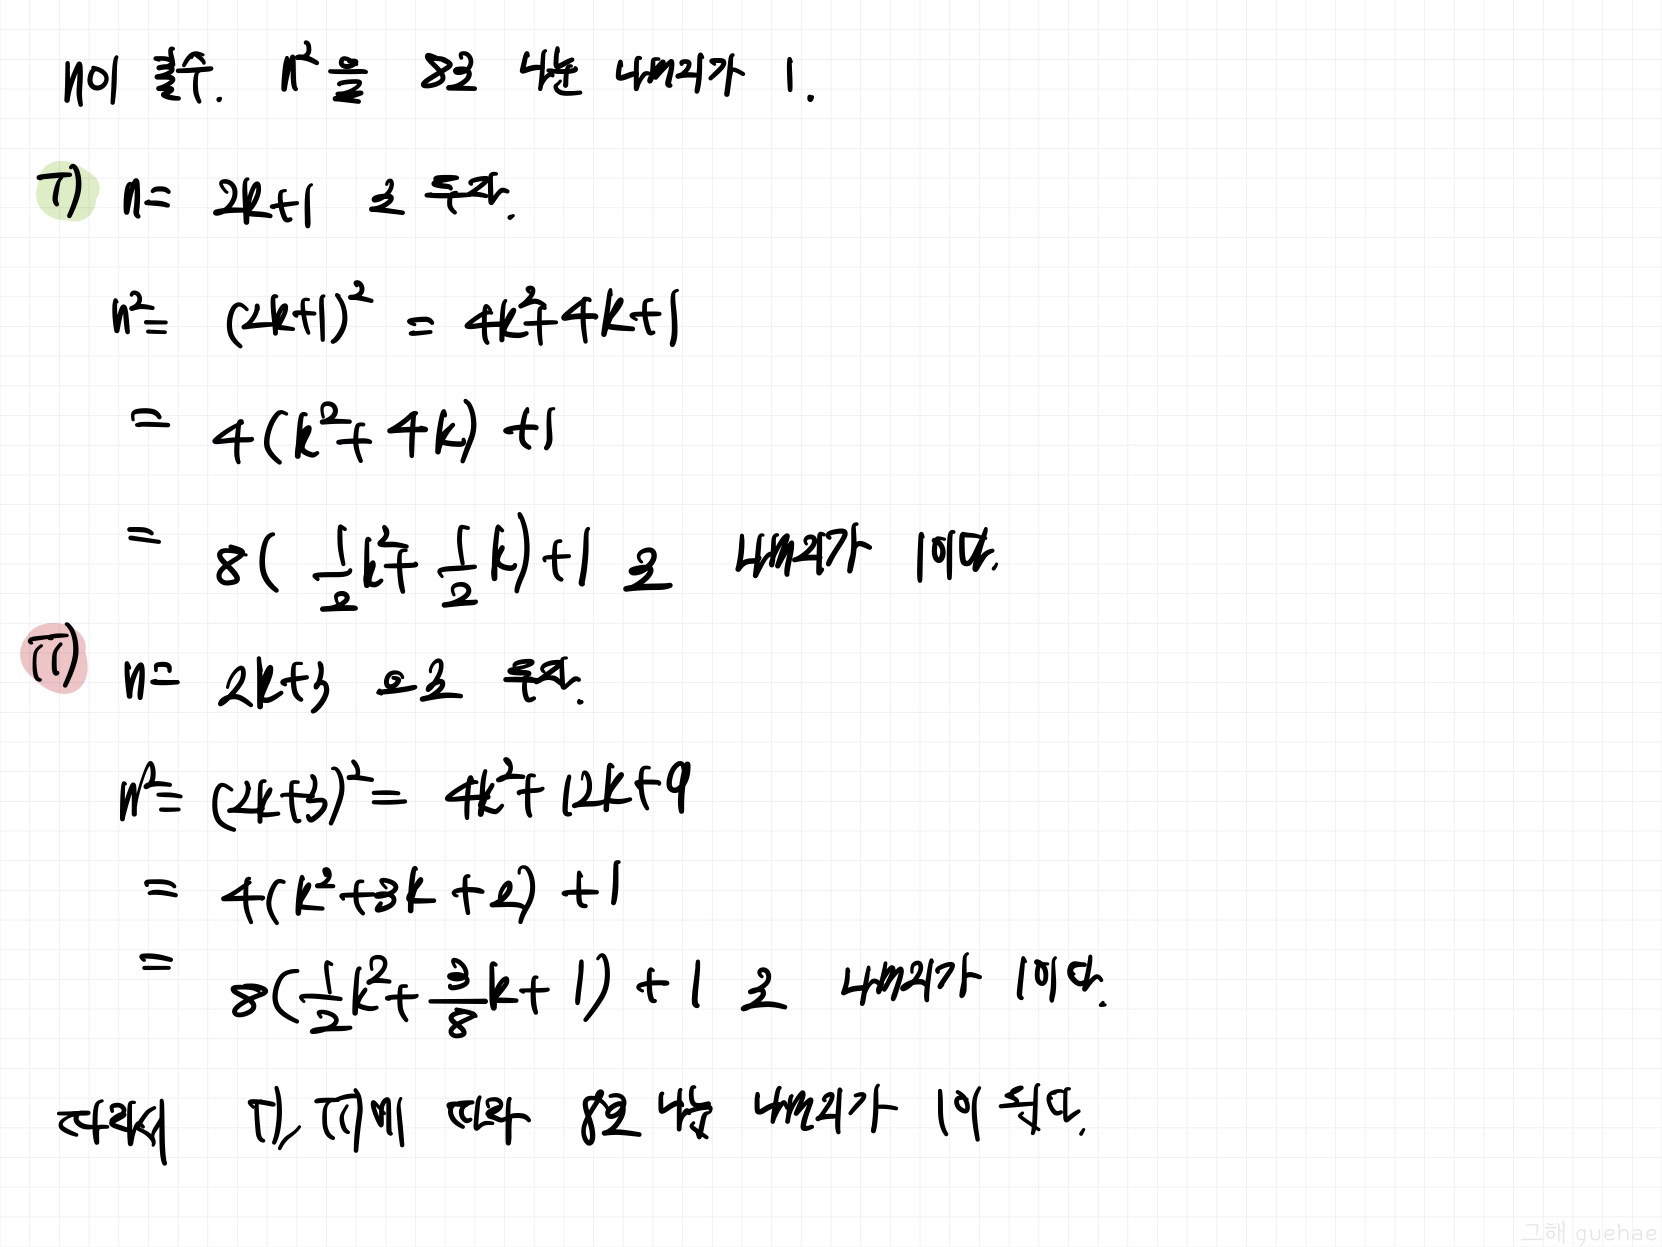 n이 홀수. n²을 8로 나눈 나머지가 1.
i) n= 2k+1 로 두자.
n²= (2k+1)² = 4k²+4k+1
= 4(k²+4k)+1
= 8(1/2k²+1/2k)+1 로 나머지가 1이다.
ii) n= 2k+3 으로 두자.
n²= (2k+3)²= 4k²+12k+9
= 4(k²+3k+2)+1
= 8(1/2k²+3/8k+1)+1 로 나머지가 1이다.
따라서 i), ii)에 따라 8로 나눈 나머지가 1이 된다.
그해 guehae